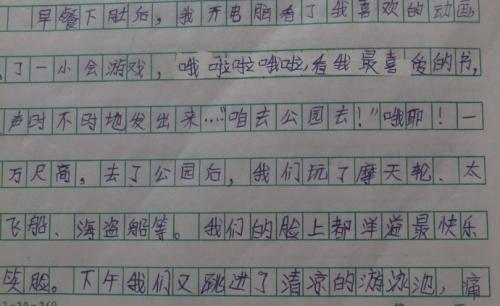 早餐下肚后，我开电脑看了我喜欢的动画，
了一小会游戏，哦啦啦哦啦，看我最喜爱的书，
声时不时地发出来…“咱去公园去！”哦耶！一
万尺高。去了公园后，我们玩了摩天轮、太
飞船、海盗船等。我们的脸上都洋溢最快乐
笑脸。下午我们又跳进了清凉的游泳池，痛